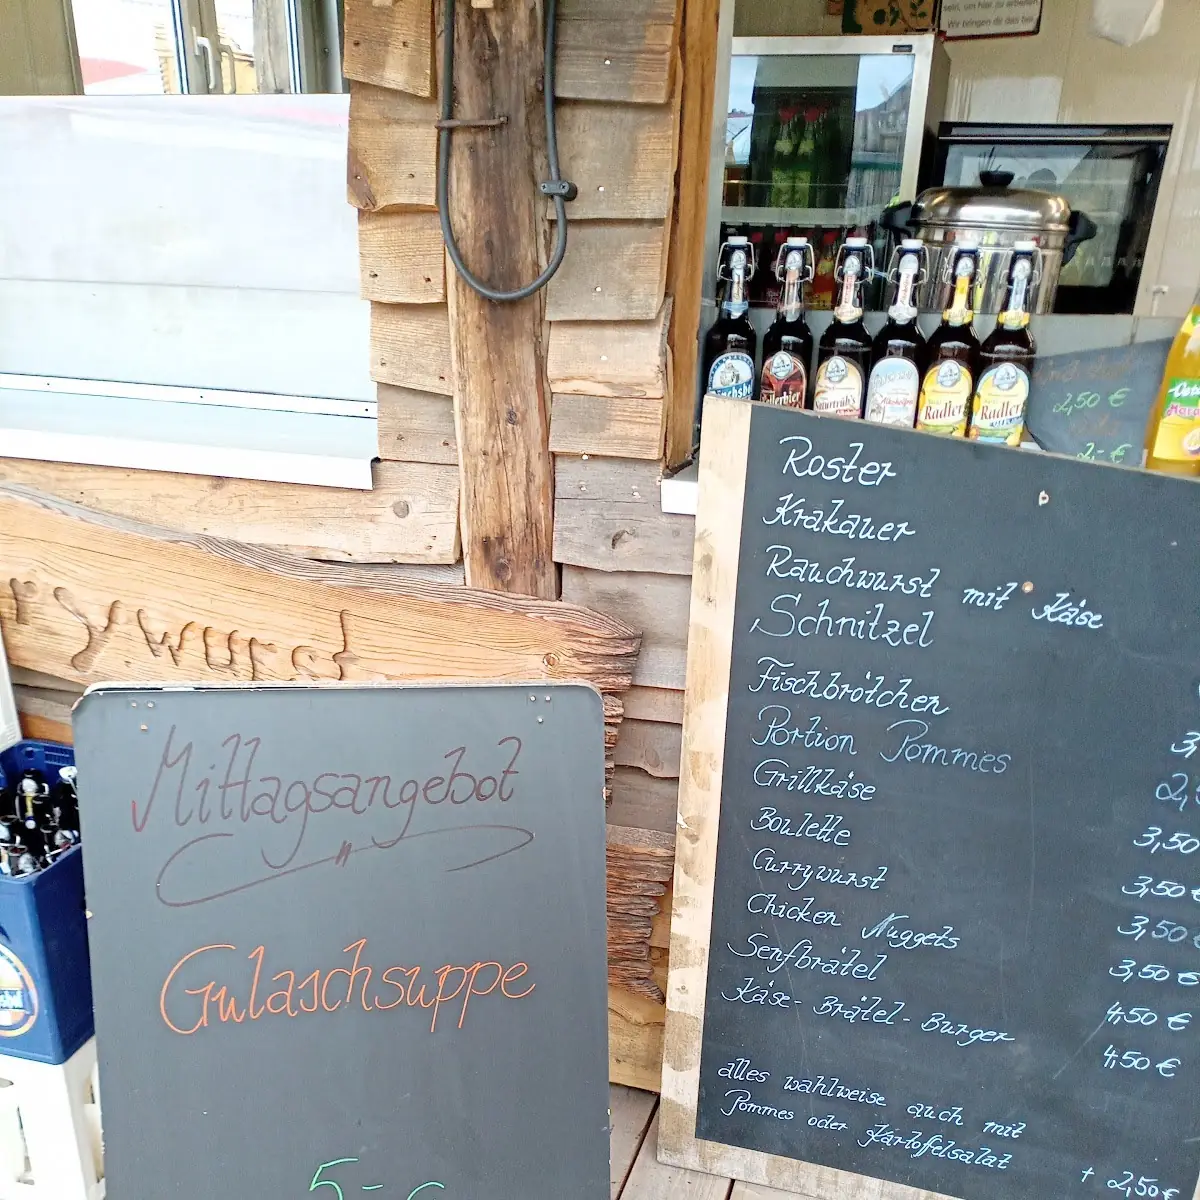 sein, um hier zu arbeiten
Wir bringen dir das bei.
Kellerbier
Naturtrüb's
Alkoholfrei
Radler
Radler
2,50 €
2,- €
Roster
Krakauer
Rauchwurst mit Käse
Schnitzel
Fischbrötchen 3,
Portion Pommes 2,
Grillkäse 3,50
Boulette 3,50 €
Currywurst 3,50
Chicken Nuggets 3,50 €
Senfbrätel 4,50 €
Käse-Brätel-Burger 4,50 €
alles wahlweise auch mit
Pommes oder Kartoffelsalat + 2,50 €
rywurst
Mittagsangebot
Gulaschsuppe
5,- €